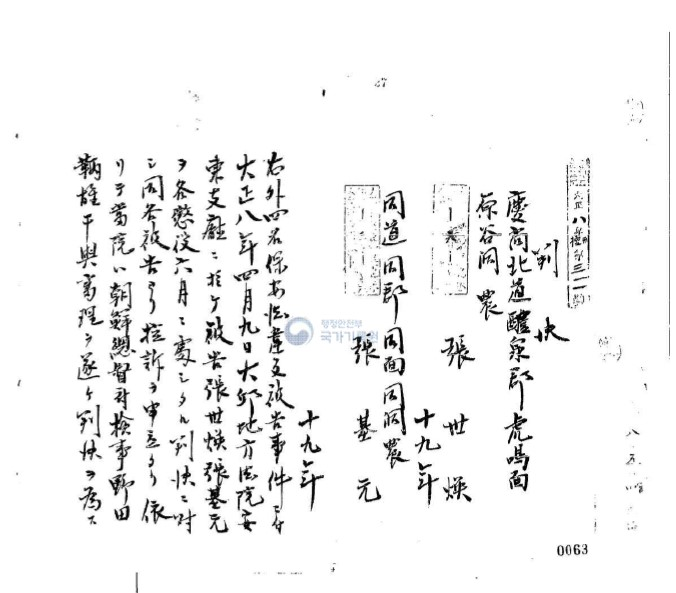 大正八年控第三一一號
判決
慶尚北道醴泉郡虎鳴面
原谷洞 農
張世煥
十九年
同道同郡同面同洞農
張基元
十九年
右外四名保安法違反被告事件ニ付
大正八年四月九日大邱地方法院安
東支廳ニ於テ被告張世煥張基元
ヲ各懲役六月ニ處シタル判決ニ対
シ同各被告ヨリ控訴ヲ申立タリ依
リテ當院ハ朝鮮總督府検事野田
鞆雄干與審理ヲ遂ケ判決ヲ為ス
행정안전부
국가기록원
0063